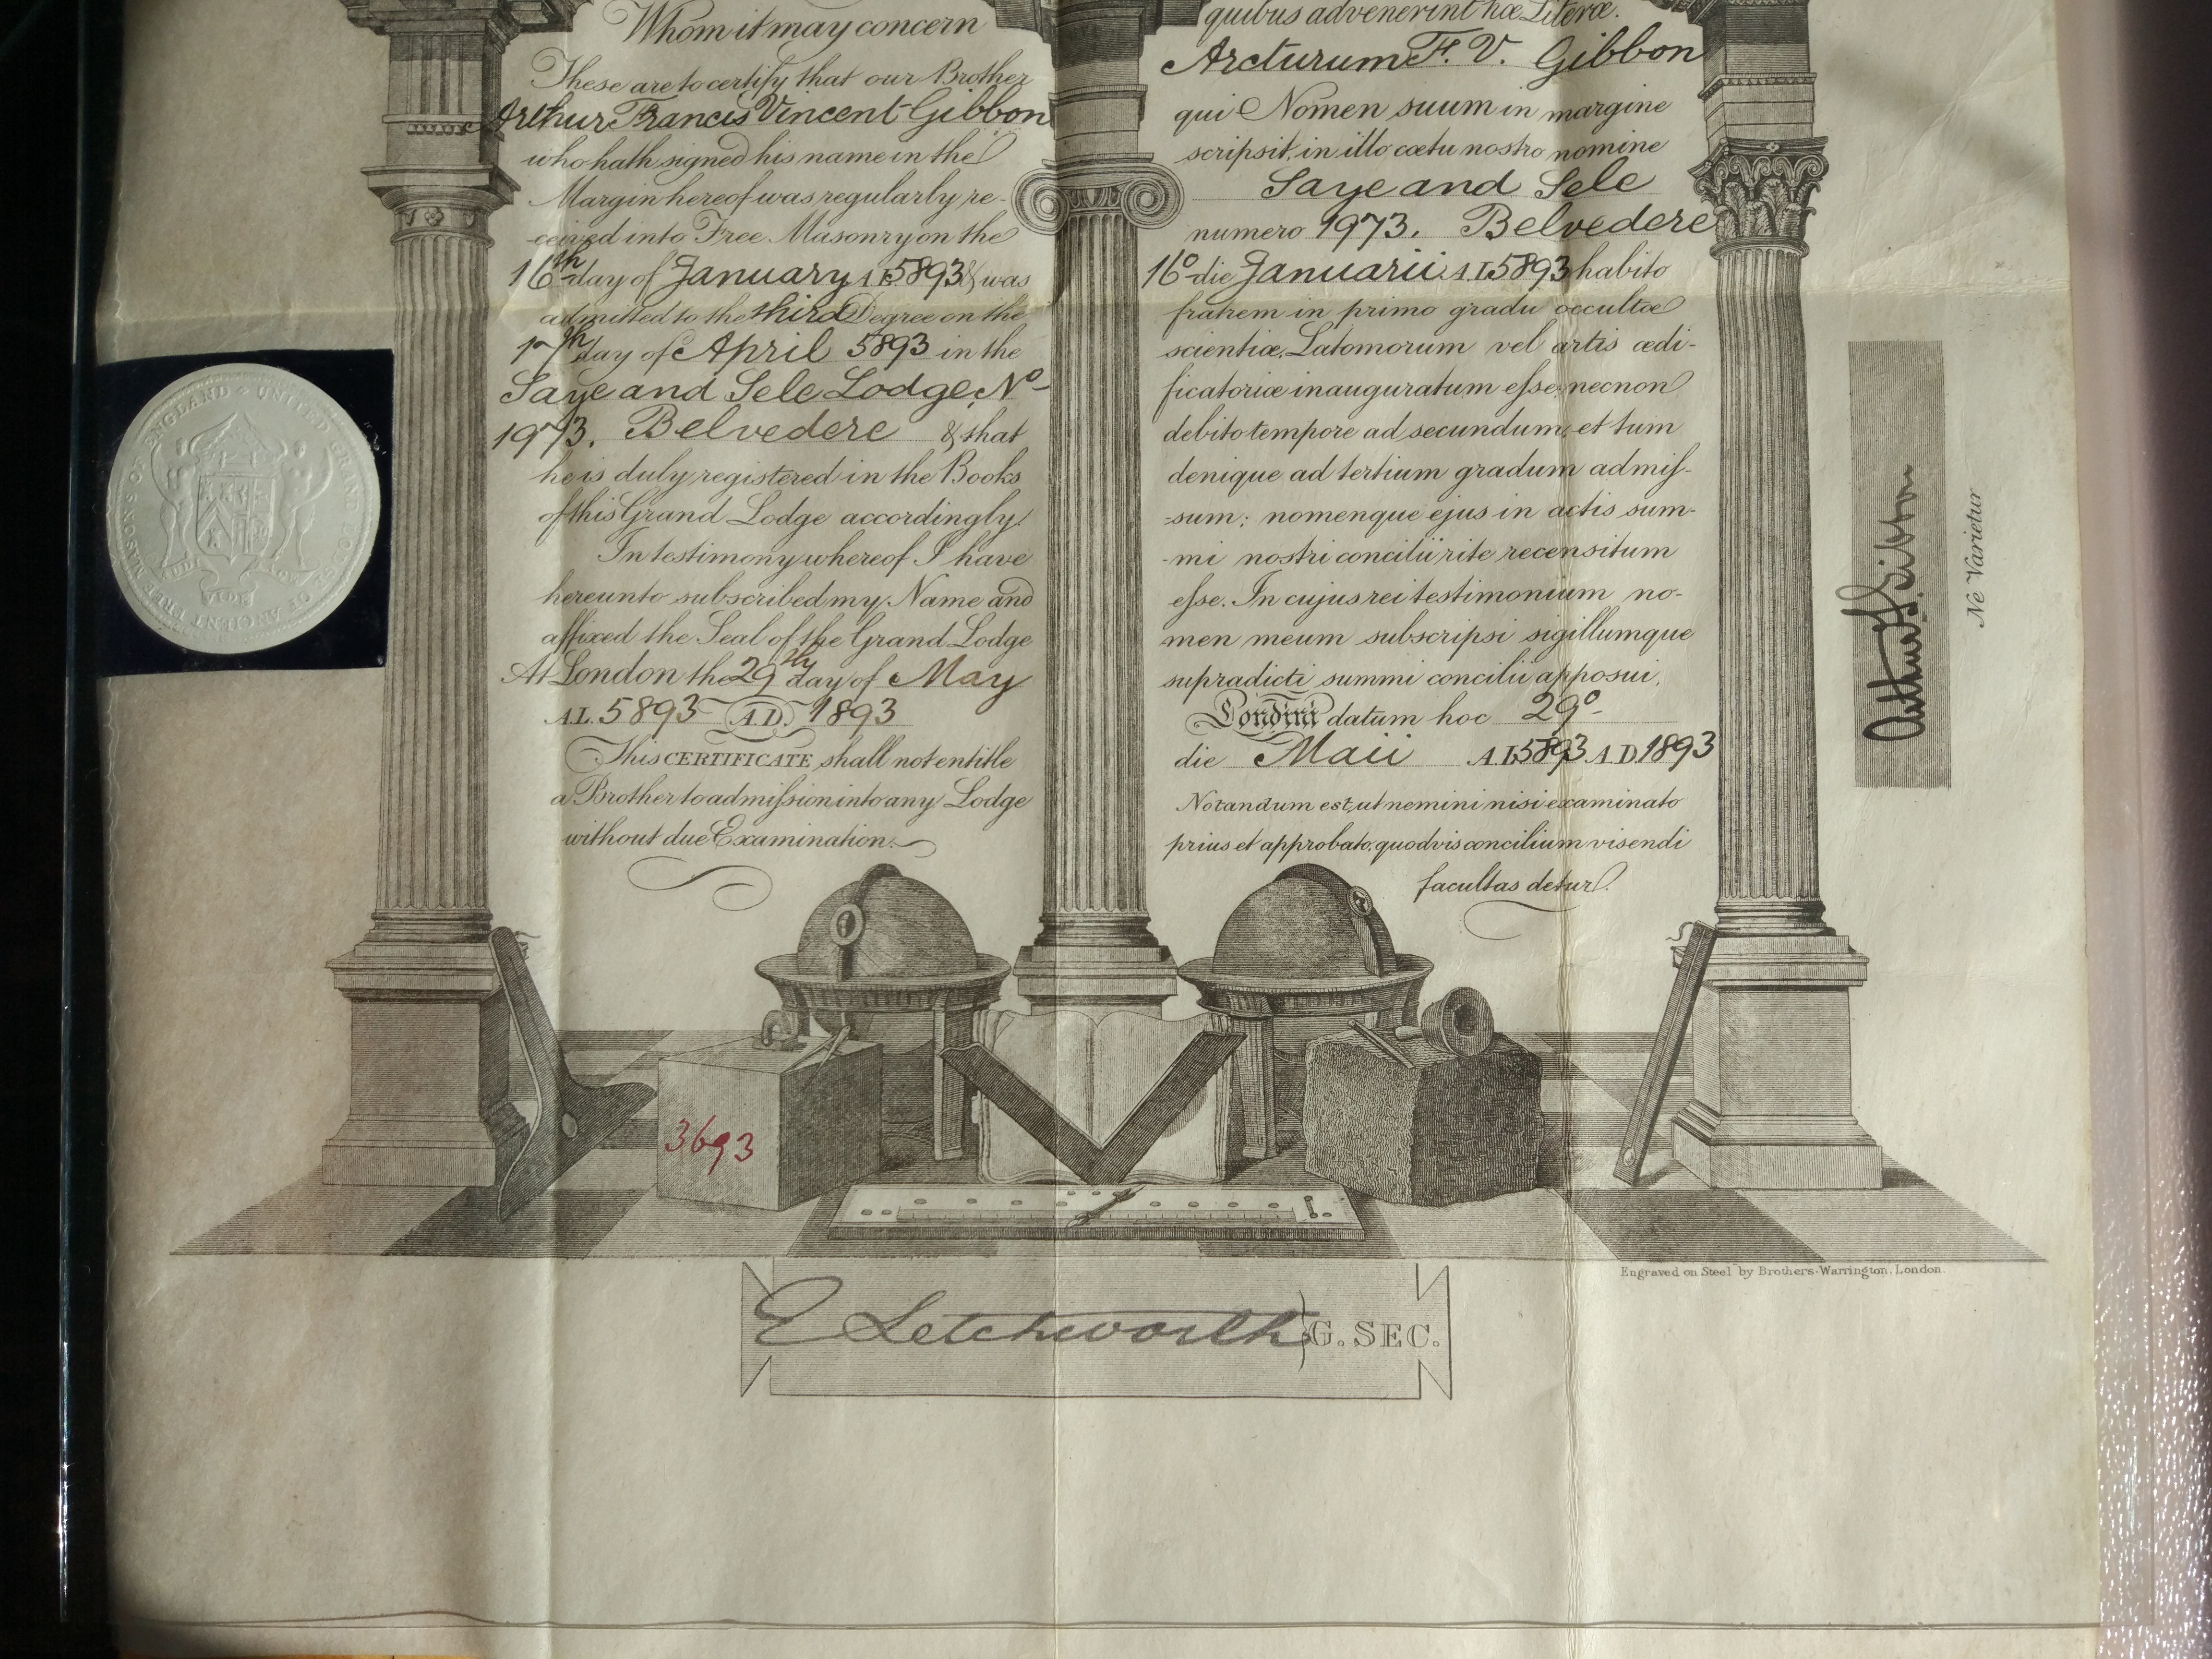 Whom it may concern
These are to certify that our Brother
Arthur Francis Vincent Gibbon
who hath signed his name in the
Margin hereof was regularly re-
-ceived into Free Masonry on the
16th day of January A.L. 5893 & was
admitted to the third Degree on the
17th day of April 5893 in the
Saye and Sele Lodge, No
1973. Belvedere & that
he is duly registered in the Books
of this Grand Lodge accordingly.
In testimony whereof I have
hereunto subscribed my Name and
affixed the Seal of the Grand Lodge
At London the 29th day of May
A.L. 5893 A.D. 1893
This CERTIFICATE shall not entitle
a Brother to admission into any Lodge
without due Examination.
quibus advenerint hæ Literæ.
Arcturum F. V. Gibbon
qui Nomen suum in margine
scripsit, in illo cœtu nostro nomine
Saye and Sele
numero 1973. Belvedere
16o die Januarii A.L. 5893 habito
fratrem in primo gradu occultæ
scientiæ, Latomorum vel artis ædi-
ficatoriæ inauguratum esse; necnon
debito tempore ad secundum, et tum
denique ad tertium gradum admis-
-sum; nomenque ejus in actis sum-
-mi nostri concilii rite recensitum
esse. In cujus rei testimonium no-
men meum subscripsi sigillumque
supradicti summi concilii apposui.
Londini datum hoc 29o
die Maii A.L. 5893 A.D. 1893
Notandum est, ut nemini nisi examinato
prius et approbato, quodvis concilium visendi
facultas detur.
UNITED GRAND LODGE OF ANCIENT FREE MASONS OF ENGLAND
AUDI VIDE
Arthur F V Gibbon
Ne Varietur
3693
Engraved on Steel by Brothers Warrington, London.
E Letchworth G. SEC.